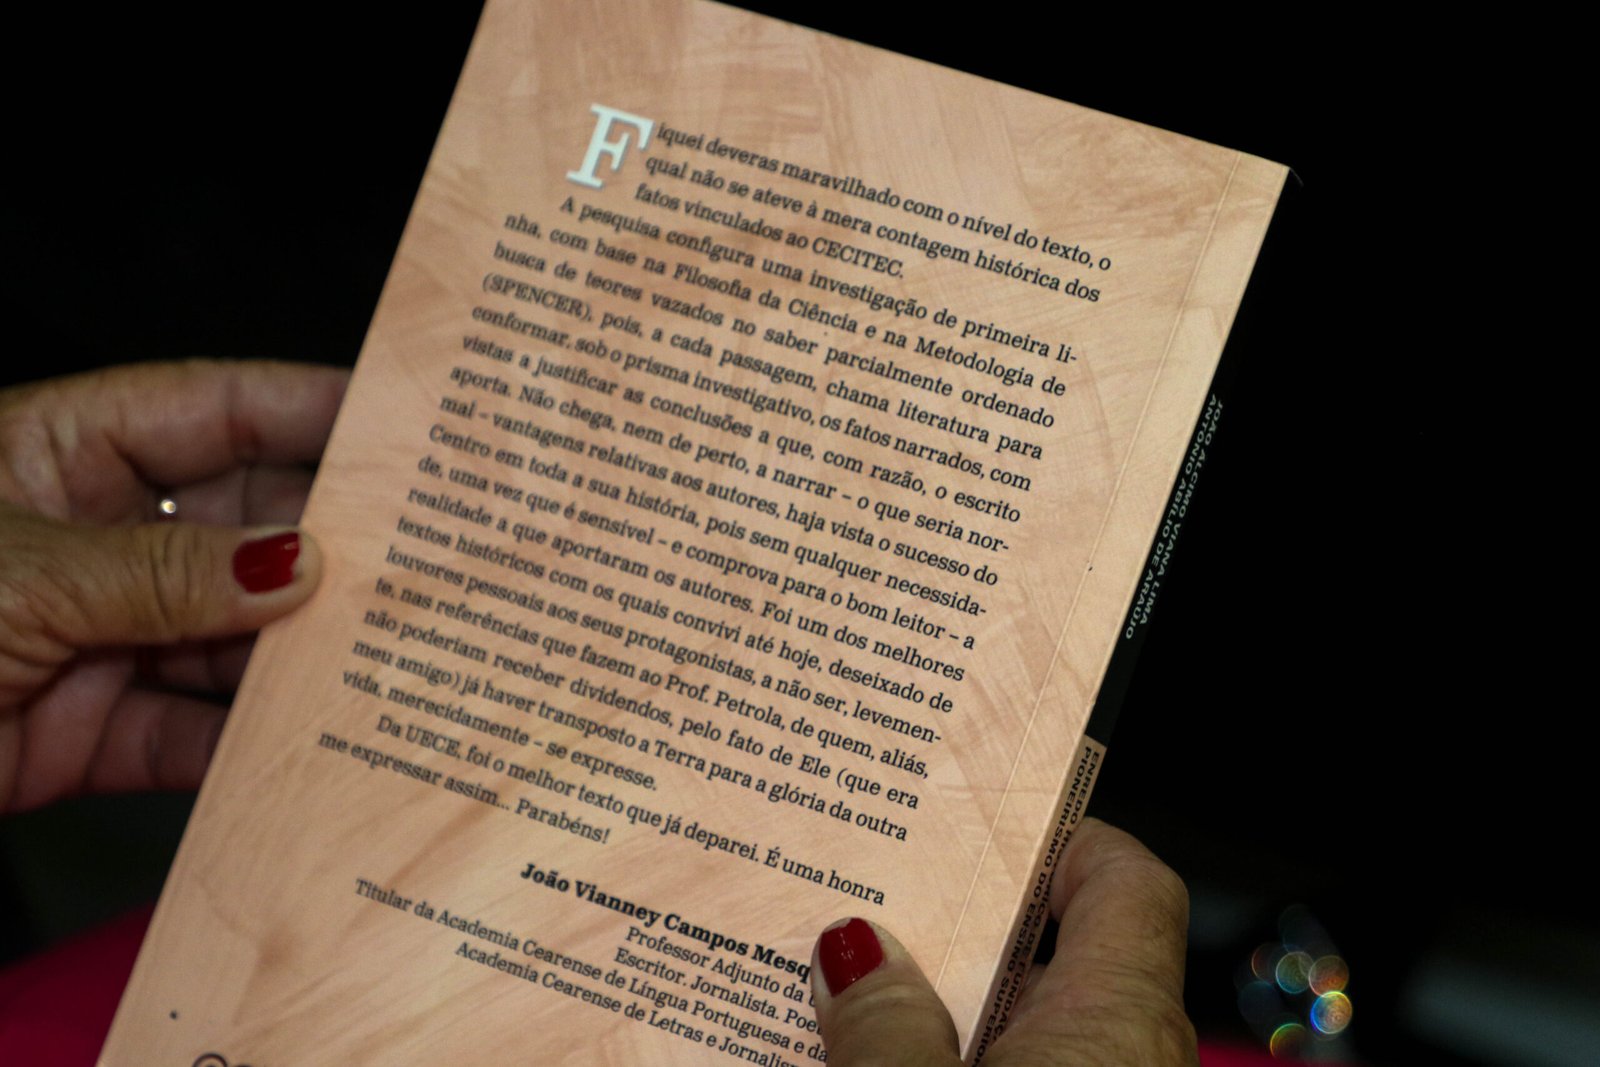 Fiquei deveras maravilhado com o nível do texto, o
qual não se ateve à mera contagem histórica dos
fatos vinculados ao CECITEC.
A pesquisa configura uma investigação de primeira li-
nha, com base na Filosofia da Ciência e na Metodologia de
busca de teores vazados no saber parcialmente ordenado
(SPENCER), pois, a cada passagem, chama literatura para
conformar, sob o prisma investigativo, os fatos narrados, com
vistas a justificar as conclusões a que, com razão, o escrito
aporta. Não chega, nem de perto, a narrar – o que seria nor-
mal – vantagens relativas aos autores, haja vista o sucesso do
Centro em toda a sua história, pois sem qualquer necessida-
de, uma vez que é sensível – e comprova para o bom leitor – a
realidade a que aportaram os autores. Foi um dos melhores
textos históricos com os quais convivi até hoje, deseixado de
louvores pessoais aos seus protagonistas, a não ser, levemen-
te, nas referências que fazem ao Prof. Petrola, de quem, aliás,
não poderiam receber dividendos, pelo fato de Ele (que era
meu amigo) já haver transposto a Terra para a glória da outra
vida, merecidamente – se expresse.
Da UECE, foi o melhor texto que já deparei. É uma honra
me expressar assim... Parabéns!
João Vianney Campos Mesq
Professor Adjunto da
Escritor. Jornalista. Poet
Titular da Academia Cearense de Língua Portuguesa e da
Academia Cearense de Letras e Jornalis
JOÃO ALCIMO VIANA LIMA
ANTONIO ABÍLIO DE ARAÚJO
ENREDO HISTÓRICO DE FUNDAÇ
PIONEIRISMO DO ENSINO SUPERIOR